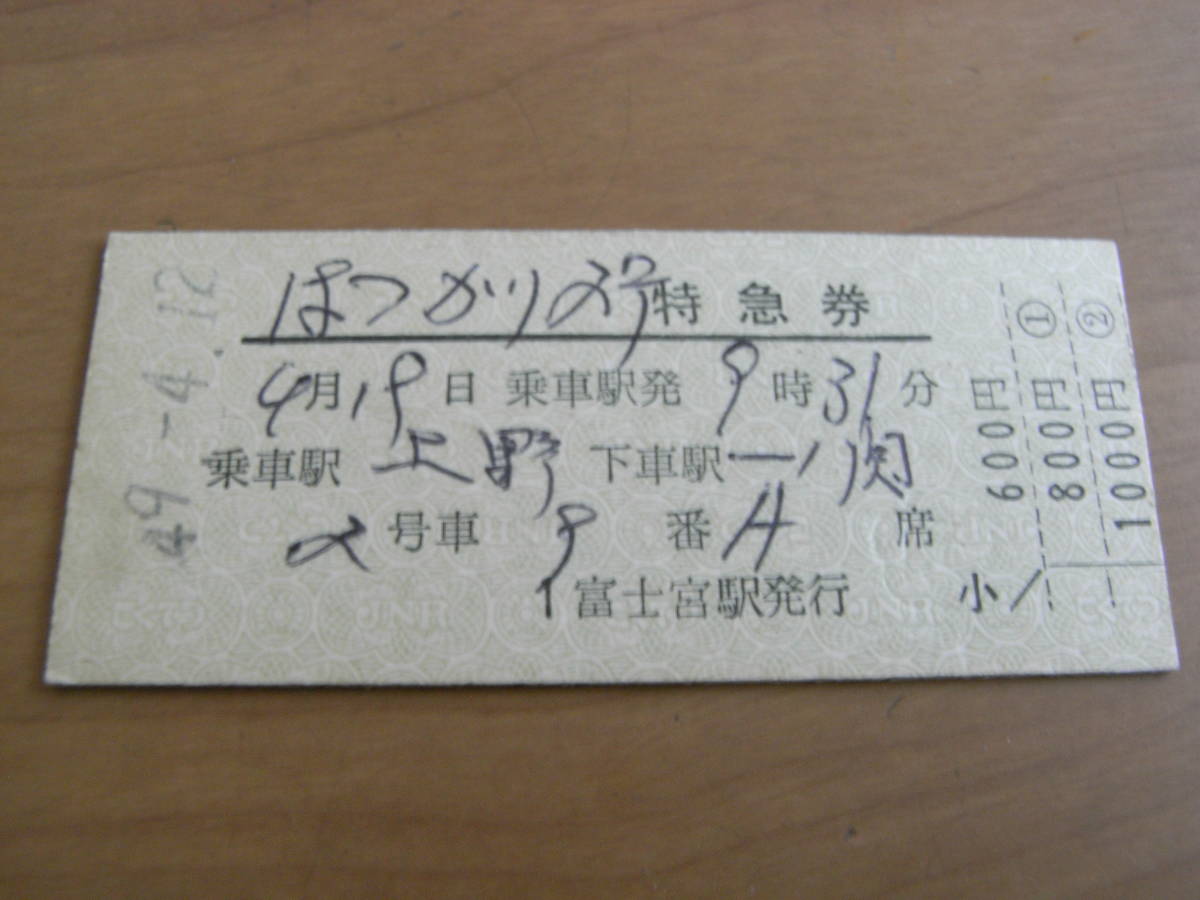 49-4-12
はつかり2号特急券
4月19日 乗車駅発 9時31分
乗車駅 上野 下車駅 一ノ関
2号車 9番A席
1富士宮駅発行
小
600円
① 800円
② 1000円